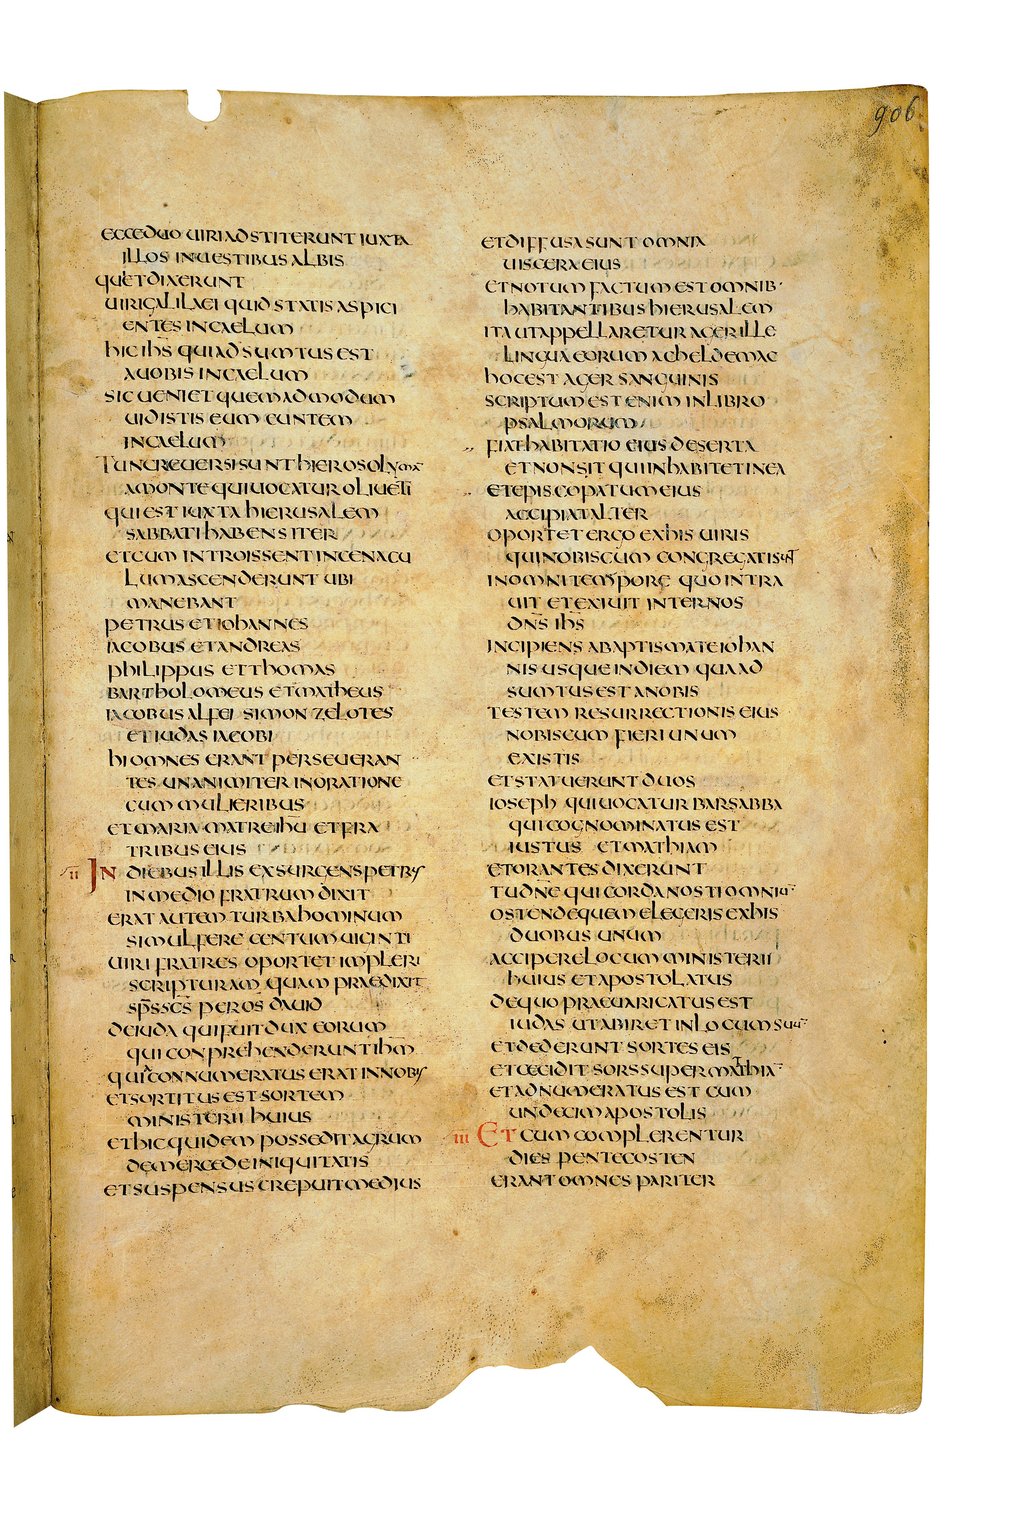 906
ecceduo uiri adstiterunt iuxta
illos inuestibus albis
quietdixerunt
uirigalilaei quid statis aspici
entes incaelum
hic ihs quiadsumtus est
auobis incaelum
sic ueniet quemadmodum
uidistis eum euntem
incaelum
Tuncreuersisunt hierosolyma
amonte quiuocatur oliueti
qui est iuxta hierusalem
sabbati habens iter
et cum introissent incenacu
lum ascenderunt ubi
manebant
petrus et iohannes
iacobus et andreas
philippus et thomas
bartholomeus et matheus
iacobus alfei simon zelotes
et iudas iacobi
hi omnes erant perseueran
tes unanimiter inoratione
cum mulieribus
et maria matre ihu et fra
tribus eius
ii In diebus illis exsurgens petrus
in medio fratrum dixit
erat autem turba hominum
simul fere centum uiginti
uiri fratres oportet impleri
scripturam quam praedixit
sps scs per os dauid
de iuda qui fuit dux eorum
qui conprehenderunt ihm
qui connumeratus erat innobis
et sortitus est sortem
ministerii huius
et hic quidem possedit agrum
de mercede iniquitatis
et suspensus crepuit medius
et diffusa sunt omnia
uiscera eius
et notum factum est omnib·
habitantibus hierusalem
ita ut appellaretur ager ille
lingua eorum acheldemac
hoc est ager sanguinis
scriptum est enim in libro
psalmorum
fiat habitatio eius deserta
et non sit qui inhabitet in ea
et episcopatum eius
accipiat alter
oportet ergo ex his uiris
qui nobiscum congregati sunt
in omni tempore quo intra
uit et exiuit inter nos
dns ihs
incipiens abaptismate iohan
nis usque indiem qua ad
sumtus est anobis
testem resurrectionis eius
nobiscum fieri unum
ex istis
et statuerunt duos
ioseph qui uocatur barsabba
qui cognominatus est
iustus et mathiam
et orantes dixerunt
tu dne qui corda nosti omnium
ostende quem elegeris ex his
duobus unum
accipere locum ministerii
huius et apostolatus
de quo praeuaricatus est
iudas ut abiret in locum suum
et dederunt sortes eis
et cecidit sors super matthiam
et adnumeratus est cum
undecim apostolis
iii Et cum complerentur
dies pentecosten
erant omnes pariter